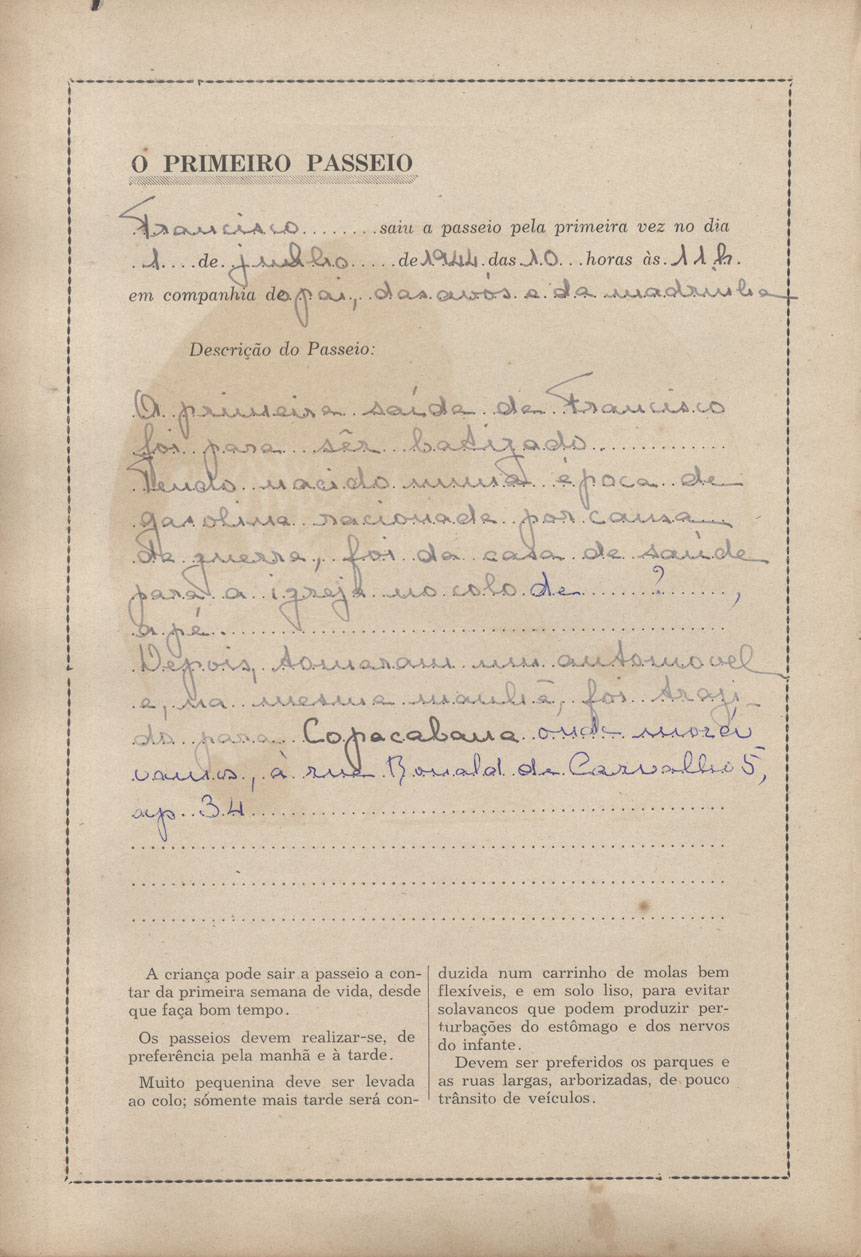 O PRIMEIRO PASSEIO
Francisco........saiu a passeio pela primeira vez no dia
..1....de julho.....de 1944 das 10...horas às 11 h.
em companhia do pai, das avós e da madrinha
Descrição do Passeio:
A primeira saída de Francisco
foi para sêr batizado
Tendo nacido numa época de
gasolina racionada por causa
da guerra, foi da casa de saúde
para a igreja no colo de ? ,
a pé
Depois, tomaram um automovel
e, na mesma manhã, foi traji-
do para Copacabana onde morá
vamos, à rua Ronald de Carvalho 5,
ap. 34
A criança pode sair a passeio a con-
tar da primeira semana de vida, desde
que faça bom tempo.
Os passeios devem realizar-se, de
preferência pela manhã e à tarde.
Muito pequenina deve ser levada
ao colo; sómente mais tarde será con-
duzida num carrinho de molas bem
flexíveis, e em solo liso, para evitar
solavancos que podem produzir per-
turbações do estômago e dos nervos
do infante.
Devem ser preferidos os parques e
as ruas largas, arborizadas, de pouco
trânsito de veículos.